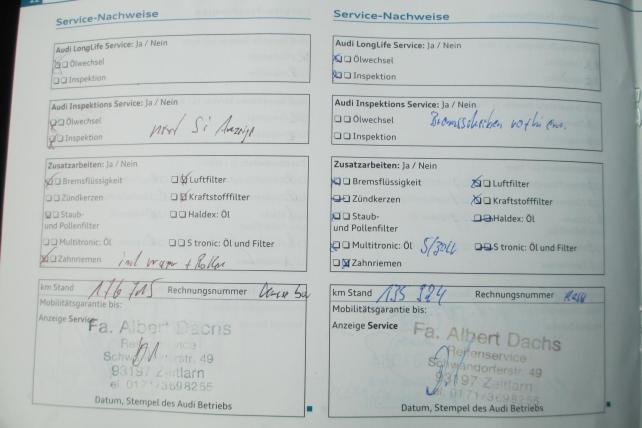 Service-Nachweise
Audi LongLife Service: Ja / Nein
Ölwechsel
Inspektion
Audi Inspektions Service: Ja / Nein
Ölwechsel
Inspektion
nach Si Anzeige
Zusatzarbeiten: Ja / Nein
Bremsflüssigkeit
Luftfilter
Zündkerzen
Kraftstofffilter
Staub-
und Pollenfilter
Haldex: Öl
Multitronic: Öl
S tronic: Öl und Filter
Zahnriemen
km Stand
Rechnungsnummer
Mobilitätsgarantie bis:
Anzeige Service
Fa. Albert Dachs
Reifenservice
Schwandorferstr. 49
93197 Zeitlarn
Tel. 0171/3698255
Datum, Stempel des Audi Betriebs
Service-Nachweise
Audi LongLife Service: Ja / Nein
Ölwechsel
Inspektion
Audi Inspektions Service: Ja / Nein
Ölwechsel
Inspektion
Bremsscheiben
Zusatzarbeiten: Ja / Nein
Bremsflüssigkeit
Luftfilter
Zündkerzen
Kraftstofffilter
Staub-
und Pollenfilter
Haldex: Öl
Multitronic: Öl
S tronic: Öl und Filter
Zahnriemen
km Stand 135 324 Rechnungsnummer
Mobilitätsgarantie bis:
Anzeige Service
Fa. Albert Dachs
Reifenservice
Schwandorferstr. 49
93197 Zeitlarn
Tel. 0171/3698255
Datum, Stempel des Audi Betriebs